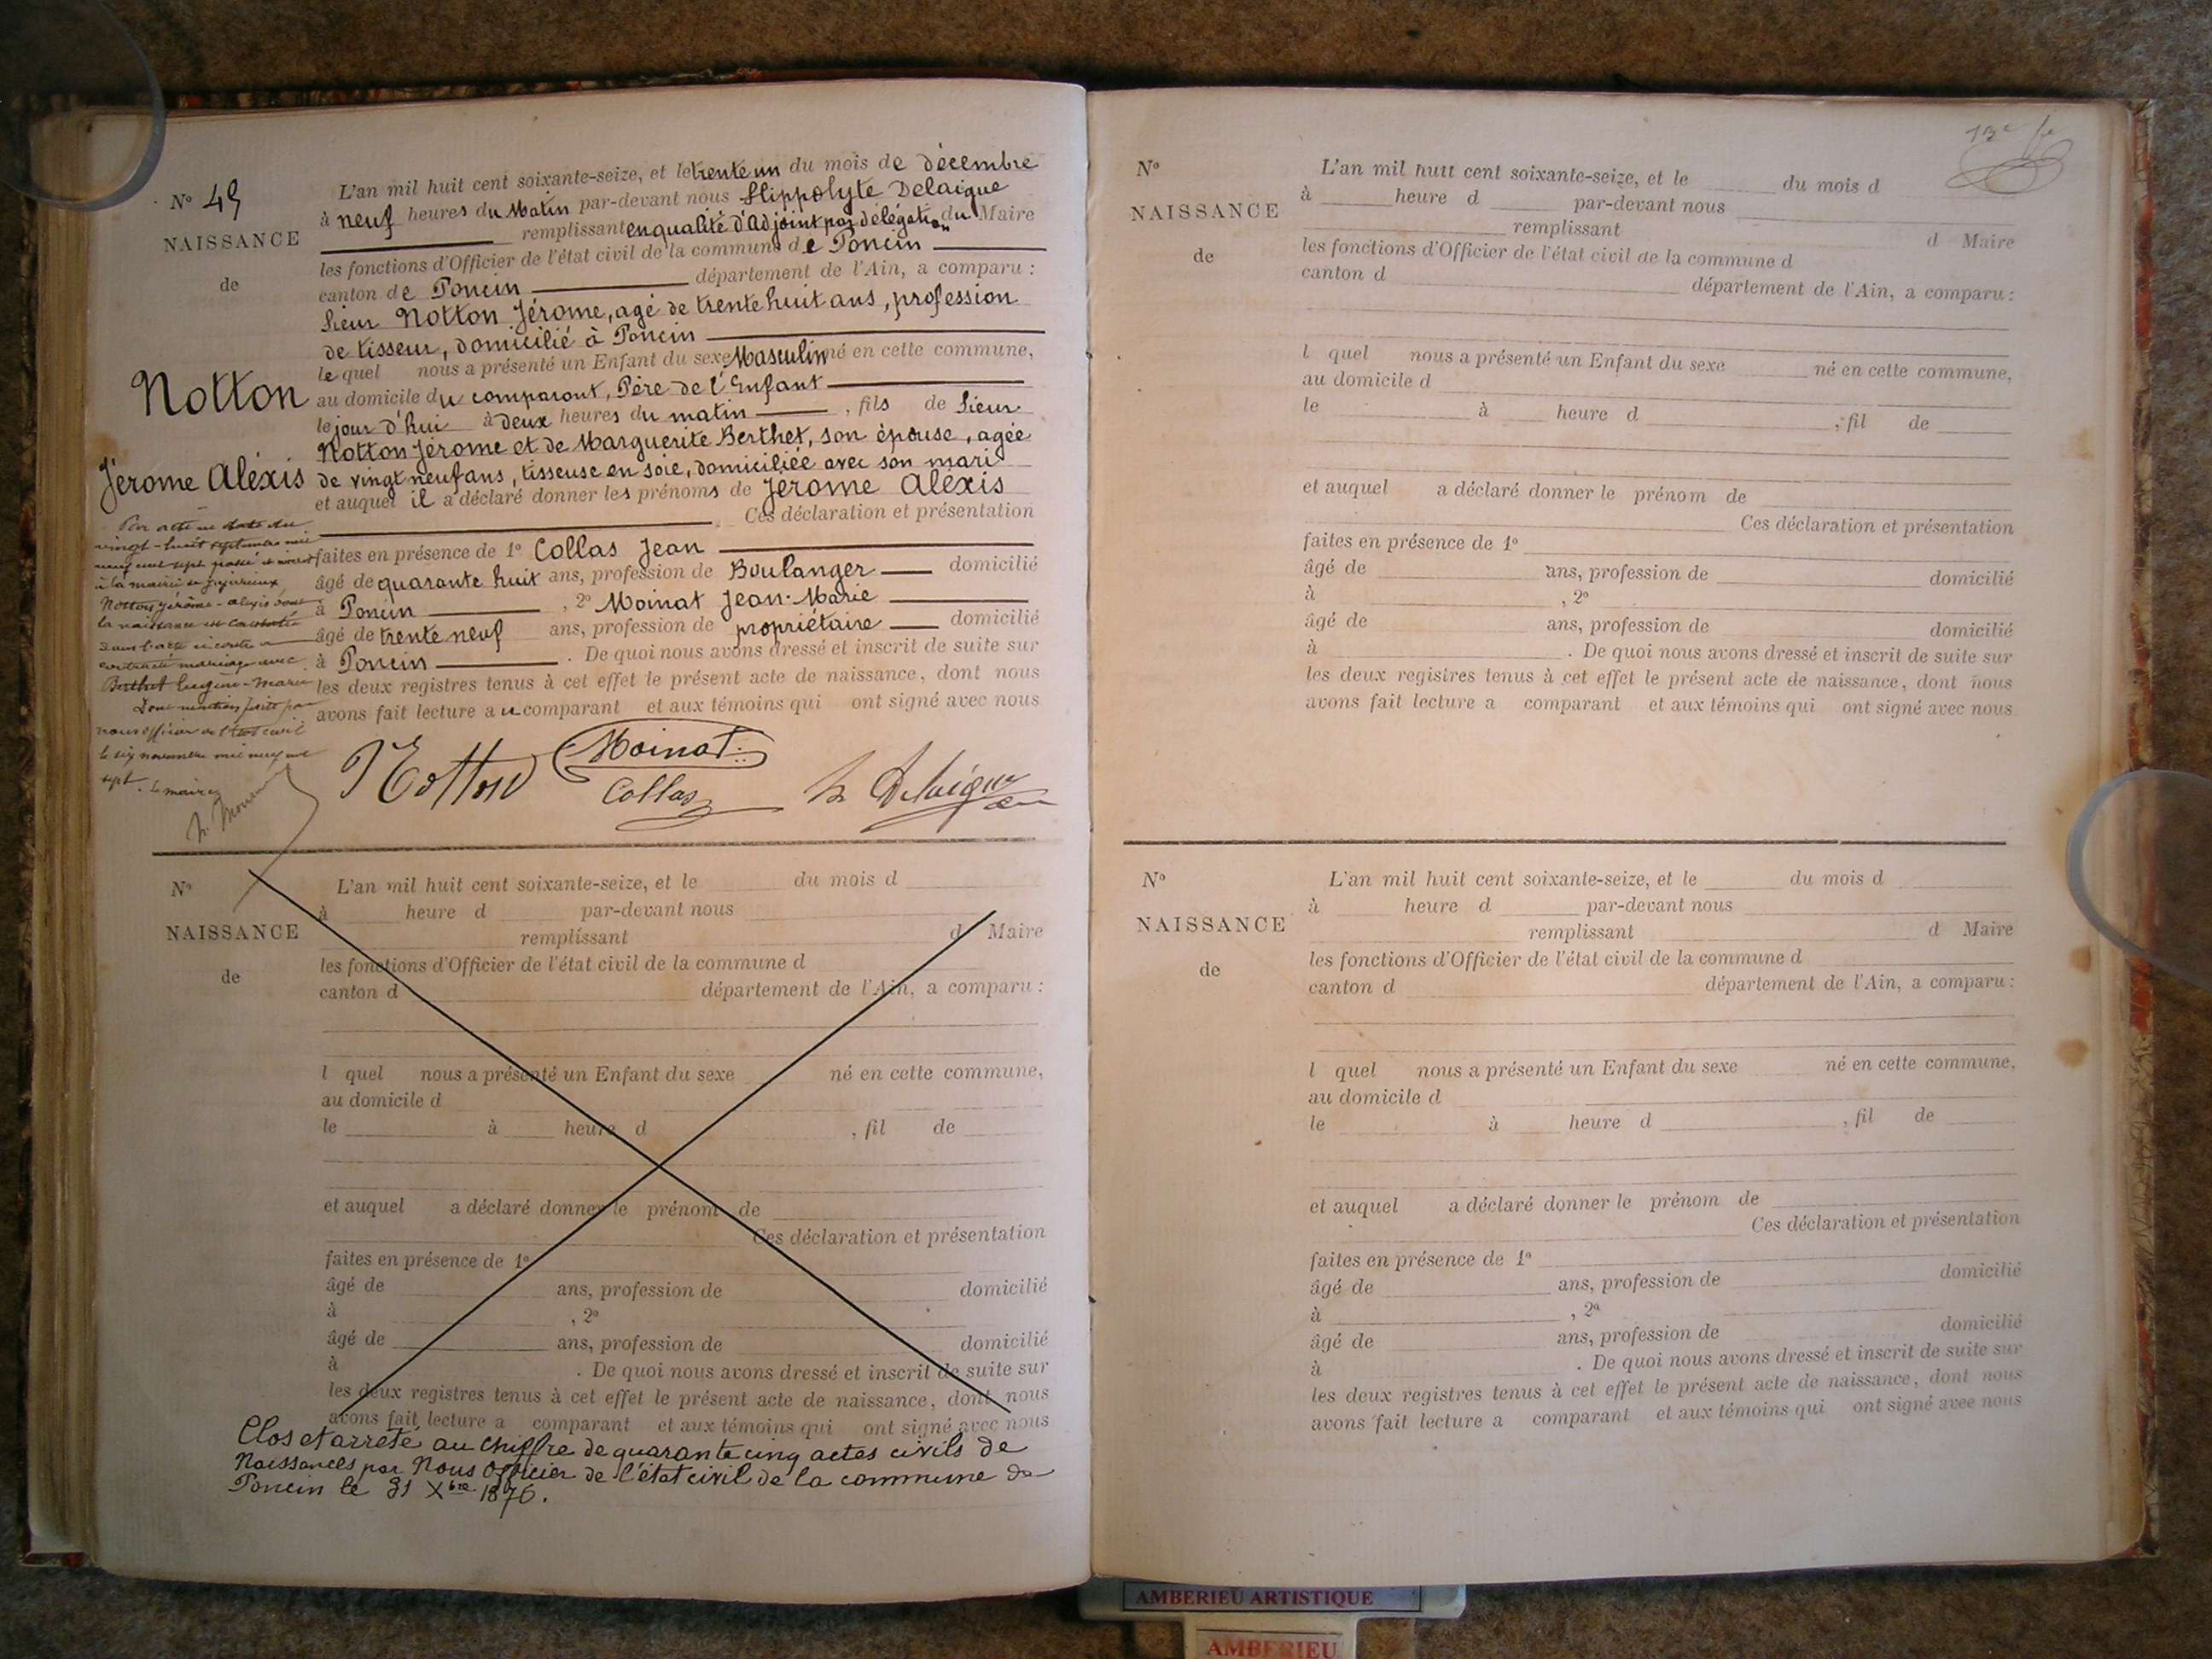 N° 45
NAISSANCE
de
Notton
Jérome Aléxis
L'an mil huit cent soixante-seize, et le trente un du mois de décembre
à neuf heures du Matin par-devant nous Hippolyte Delaigue
remplissant en qualité d'Adjoint par délégation du Maire
les fonctions d'Officier de l'état civil de la commune de Poncin
canton de Poncin département de l'Ain, a comparu :
Sieur Notton Jérome, agé de trente huit ans, profession
de tisseur, domicilié à Poncin
le quel nous a présenté un Enfant du sexe Masculin né en cette commune,
au domicile du comparant, Père de l'Enfant
le jour d'hui à deux heures du matin , fils de Sieur
Notton Jérome et de Marguerite Berthet, son épouse, agée
de vingt neuf ans, tisseuse en soie, domiciliée avec son mari
et auquel il a déclaré donner les prénoms de Jérome Aléxis
Ces déclaration et présentation
faites en présence de 1° Collas Jean
âgé de quarante huit ans, profession de Boulanger domicilié
à Poncin , 2° Moinat Jean-Marie
âgé de trente neuf ans, profession de propriétaire domicilié
à Poncin . De quoi nous avons dressé et inscrit de suite sur
les deux registres tenus à cet effet le présent acte de naissance, dont nous
avons fait lecture au comparant et aux témoins qui ont signé avec nous
Par acte en date du
vingt-huit septembre mil
neuf cent sept passé et inscrit
à la mairie de Jujurieux
Notton Jérôme-Alexis dont
la naissance est constatée
dans l'acte ci contre a
contracté mariage avec
Berthet Eugénie-Marie
Dont mention faite par
nous officier de l'état civil
le six novembre mil neuf cent
sept. Le maire
Notton Moinat
Collas h Delaigue
N°
NAISSANCE
de
L'an mil huit cent soixante-seize, et le du mois d
à heure d par-devant nous
remplissant d Maire
les fonctions d'Officier de l'état civil de la commune d
canton d département de l'Ain, a comparu :
l quel nous a présenté un Enfant du sexe né en cette commune,
au domicile d
le à heure d , fil de
et auquel a déclaré donner le prénom de
Ces déclaration et présentation
faites en présence de 1°
âgé de ans, profession de domicilié
à , 2°
âgé de ans, profession de domicilié
à . De quoi nous avons dressé et inscrit de suite sur
les deux registres tenus à cet effet le présent acte de naissance, dont nous
avons fait lecture a comparant et aux témoins qui ont signé avec nous
Clos et arreté au chiffre de quarante cinq actes civils de
Naissances par Nous Officier de l'état civil de la commune de
Poncin le 31 Xbre 1876.
N°
NAISSANCE
de
L'an mil huit cent soixante-seize, et le du mois d
à heure d par-devant nous
remplissant d Maire
les fonctions d'Officier de l'état civil de la commune d
canton d département de l'Ain, a comparu :
l quel nous a présenté un Enfant du sexe né en cette commune,
au domicile d
le à heure d , fil de
et auquel a déclaré donner le prénom de
Ces déclaration et présentation
faites en présence de 1°
âgé de ans, profession de domicilié
à , 2°
âgé de ans, profession de domicilié
à . De quoi nous avons dressé et inscrit de suite sur
les deux registres tenus à cet effet le présent acte de naissance, dont nous
avons fait lecture a comparant et aux témoins qui ont signé avec nous
N°
NAISSANCE
de
L'an mil huit cent soixante-seize, et le du mois d
à heure d par-devant nous
remplissant d Maire
les fonctions d'Officier de l'état civil de la commune d
canton d département de l'Ain, a comparu :
l quel nous a présenté un Enfant du sexe né en cette commune,
au domicile d
le à heure d , fil de
et auquel a déclaré donner le prénom de
Ces déclaration et présentation
faites en présence de 1°
âgé de ans, profession de domicilié
à , 2°
âgé de ans, profession de domicilié
à . De quoi nous avons dressé et inscrit de suite sur
les deux registres tenus à cet effet le présent acte de naissance, dont nous
avons fait lecture a comparant et aux témoins qui ont signé avec nous
AMBERIEU ARTISTIQUE
AMBERIEU